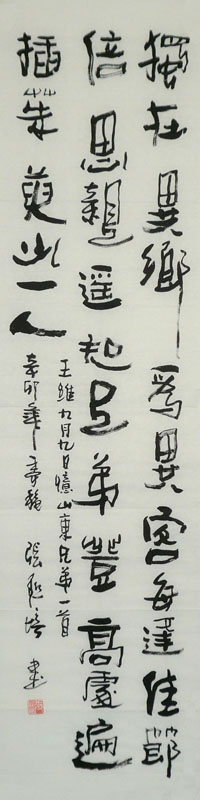 獨在異鄉爲異客每逢佳節
倍思親遥知兄弟登高處遍
插茱萸少一人
王維九月九日憶山東兄弟一首
辛卯年
張
書